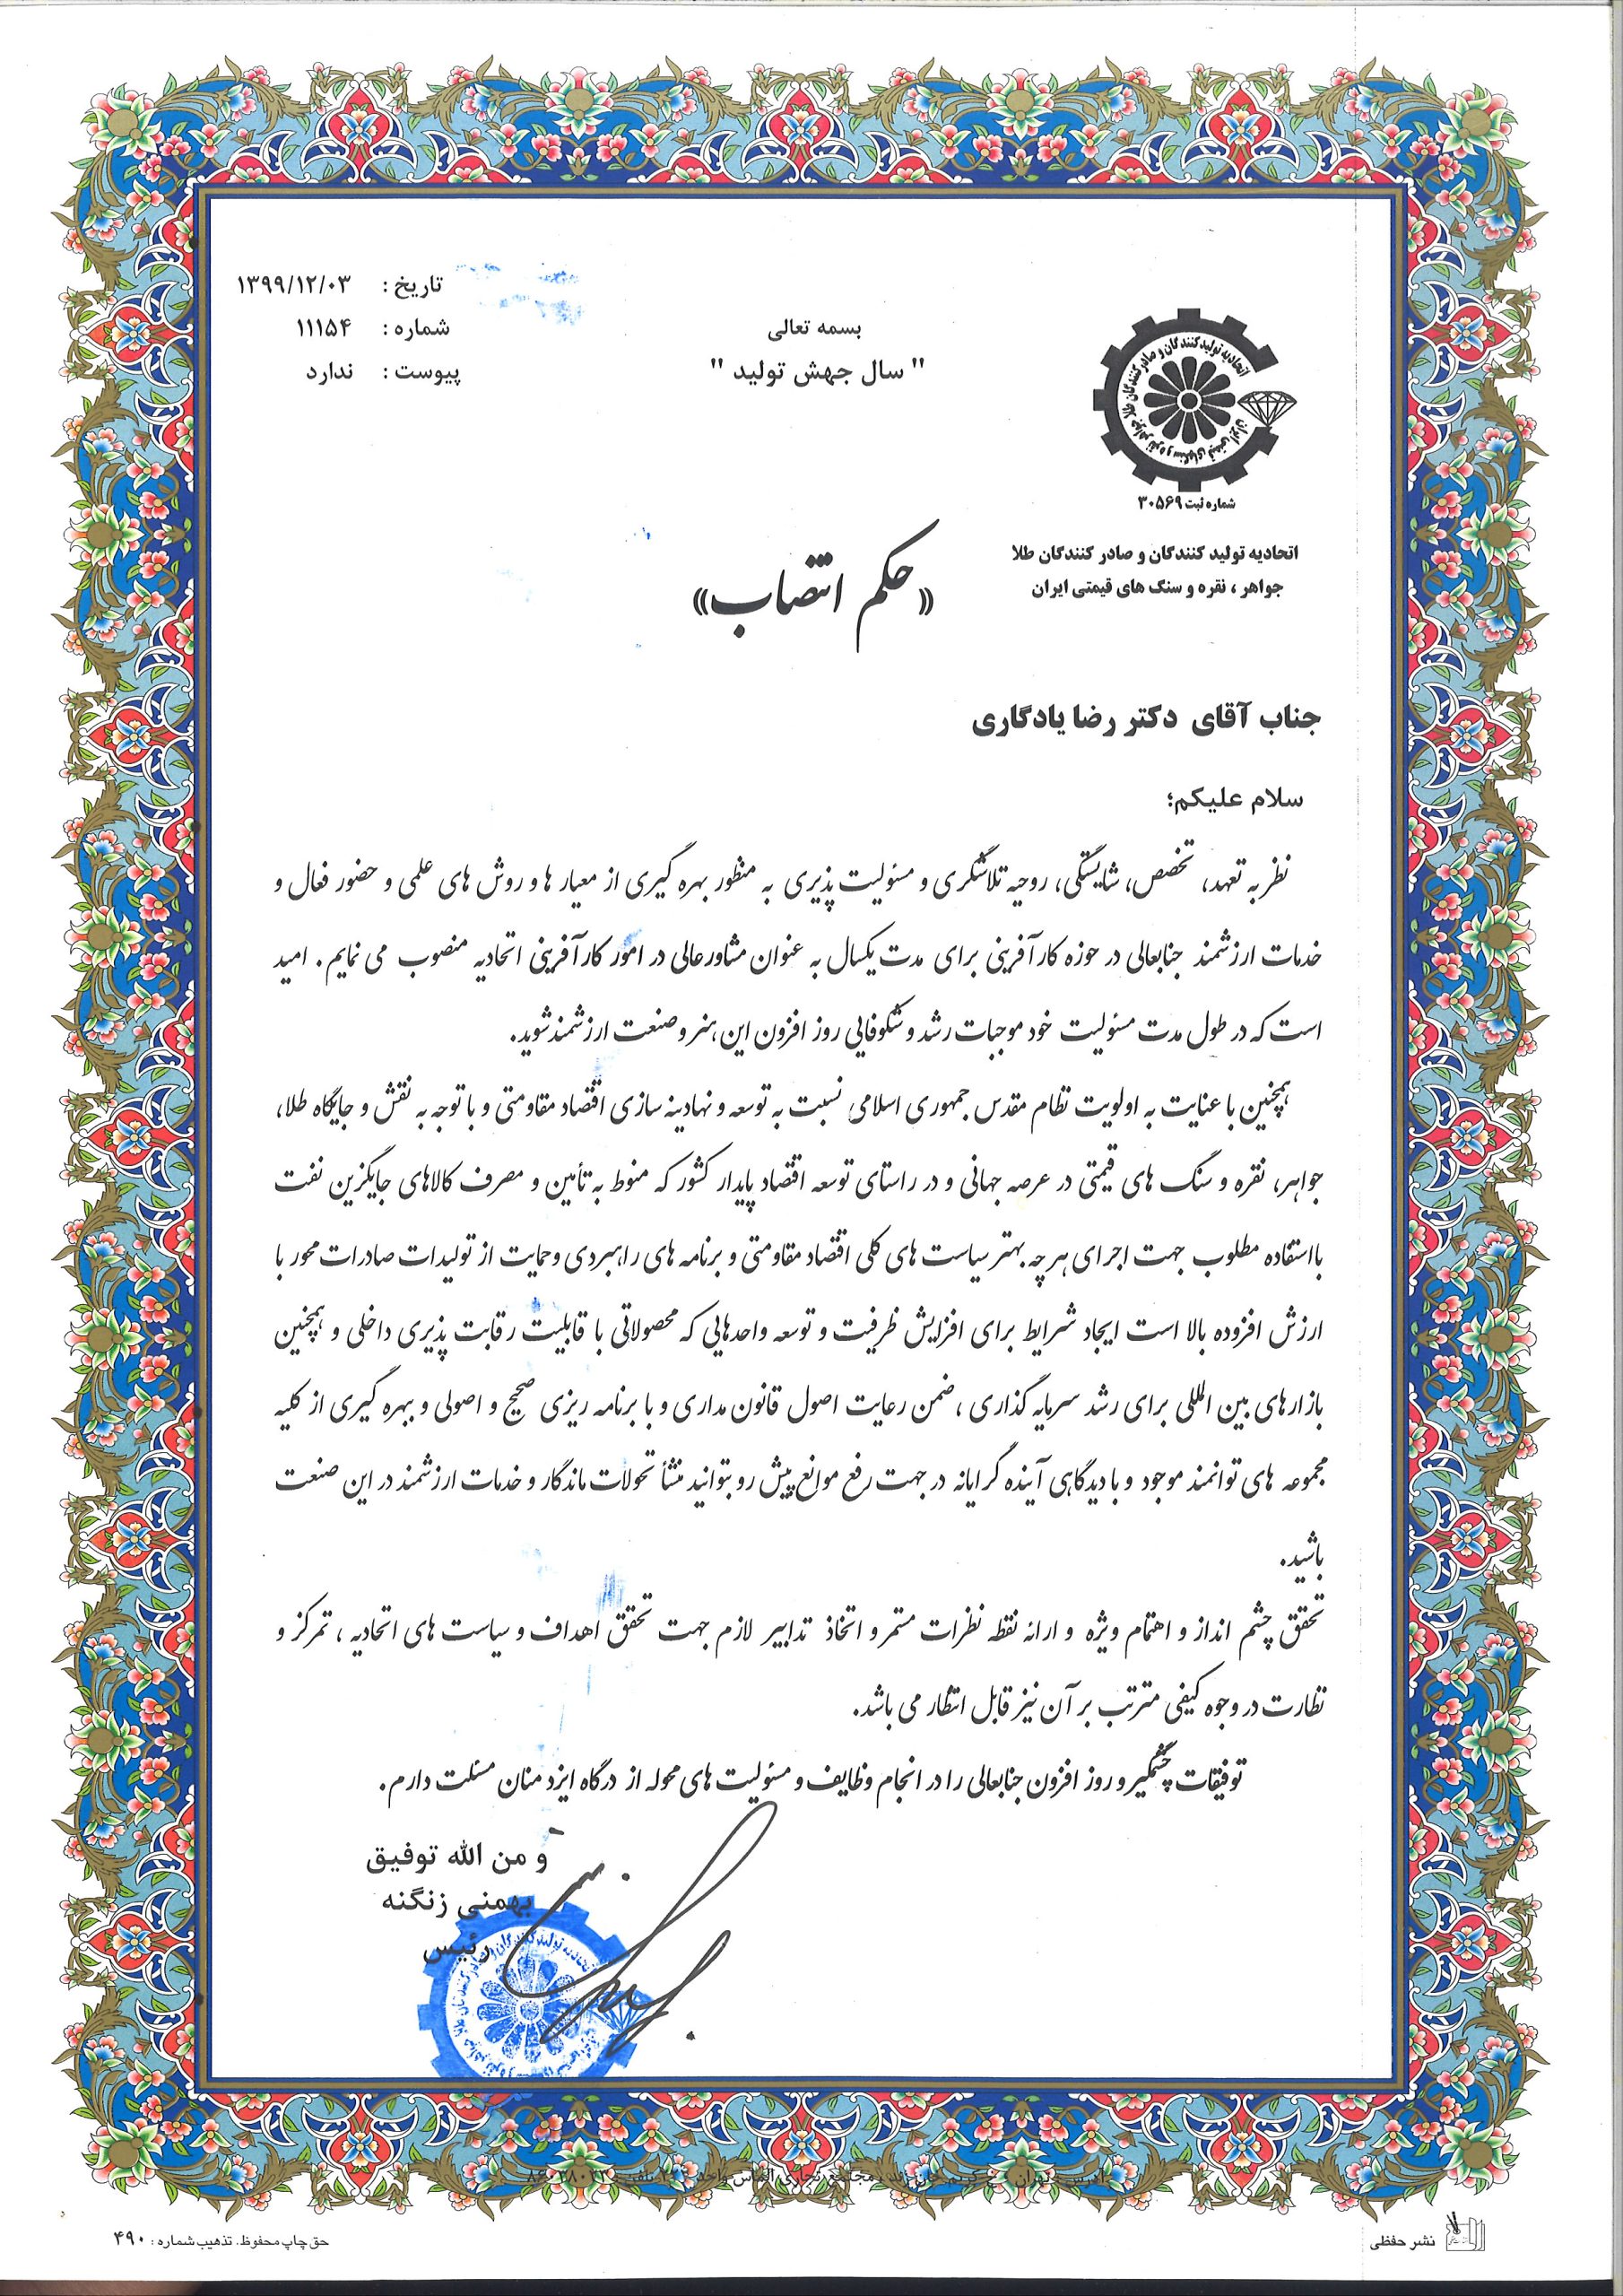 تاریخ : ۱۳۹۹/۱۲/۰۳
شماره : ۱۱۱۵۴
پیوست : ندارد
بسمه تعالی
" سال جهش تولید "
اتحادیه تولید کنندگان و صادر کنندگان طلا جواهر نقره و سنگهای قیمتی ایران
شماره ثبت ۳۰۵۶۹
اتحادیه تولید کنندگان و صادر کنندگان طلا
جواهر ، نقره و سنگ های قیمتی ایران
«حکم انتصاب»
جناب آقای دکتر رضا یادگاری
سلام علیکم؛
نظر به تعهد، تخصص، شایستگی، روحیه تلاشگری و مسئولیت پذیری به منظور بهره گیری از معیار ها و روش های علمی و حضور فعال و
خدمات ارزشمند جنابعالی در حوزه کارآفرینی برای مدت یکسال به عنوان مشاور عالی در امور کارآفرینی اتحادیه منصوب می نمایم. امید
است که در طول مدت مسئولیت خود موجبات رشد و شکوفایی روز افزون این هنر و صنعت ارزشمند شوید.
همچنین با عنایت به اولویت نظام مقدس جمهوری اسلامی نسبت به توسعه و نهادینه سازی اقتصاد مقاومتی و با توجه به نقش و جایگاه طلا،
جواهر، نقره و سنگ های قیمتی در عرصه جهانی و در راستای توسعه اقتصاد پایدار کشور که منوط به تأمین و مصرف کالاهای جایگزین نفت
با استفاده مطلوب جهت اجرای هر چه بهتر سیاست های کلی اقتصاد مقاومتی و برنامه های راهبردی و حمایت از تولیدات صادرات محور با
ارزش افزوده بالا است ایجاد شرایط برای افزایش ظرفیت و توسعه واحدهایی که محصولاتی با قابلیت رقابت پذیری داخلی و همچنین
بازارهای بین المللی برای رشد سرمایه گذاری ، ضمن رعایت اصول قانون مداری و با برنامه ریزی صحیح و اصولی و بهره گیری از کلیه
مجموعه های توانمند موجود و با دیدگاهی آینده گرایانه در جهت رفع موانع پیش رو بتوانید منشأ تحولات ماندگار و خدمات ارزشمند در این صنعت
باشید.
تحقق چشم انداز و اهتمام ویژه و ارائه نقطه نظرات مستمر و اتخاذ تدابیر لازم جهت تحقق اهداف و سیاست های اتحادیه ، تمرکز و
نظارت در وجوه کیفی مترتب بر آن نیز قابل انتظار می باشد.
توفیقات چشمگیر و روز افزون جنابعالی را در انجام وظایف و مسئولیت های محوله از درگاه ایزد منان مسئلت دارم.
و من الله توفیق
بهمنی زنگنه
رئیس
نشر حفظی
حق چاپ محفوظ. تذهیب شماره : ۴۹۰